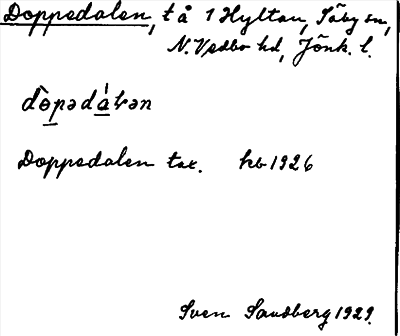 Doppedalen, t å 1 Hyltan, Säby sn,
N. Vedbo hd, Jönk. l.
dòpədáɫən
Doppedalen tax. hb 1926
Sven Sandberg 1929.